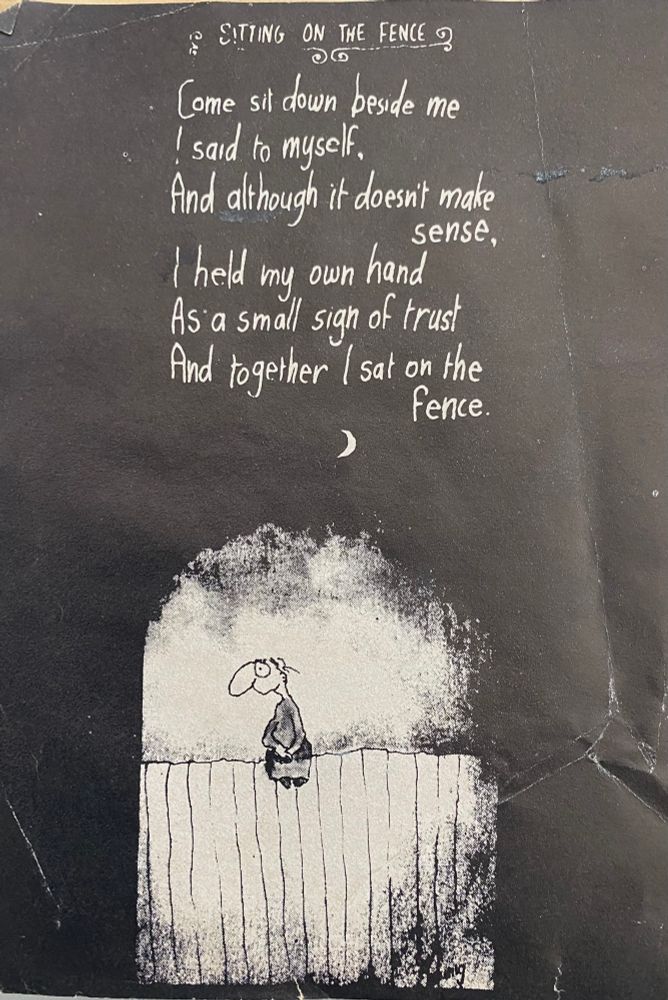 SITTING ON THE FENCE
Come sit down beside me
I said to myself,
And although it doesn't make
sense,
I held my own hand
As a small sign of trust
And together I sat on the
fence.